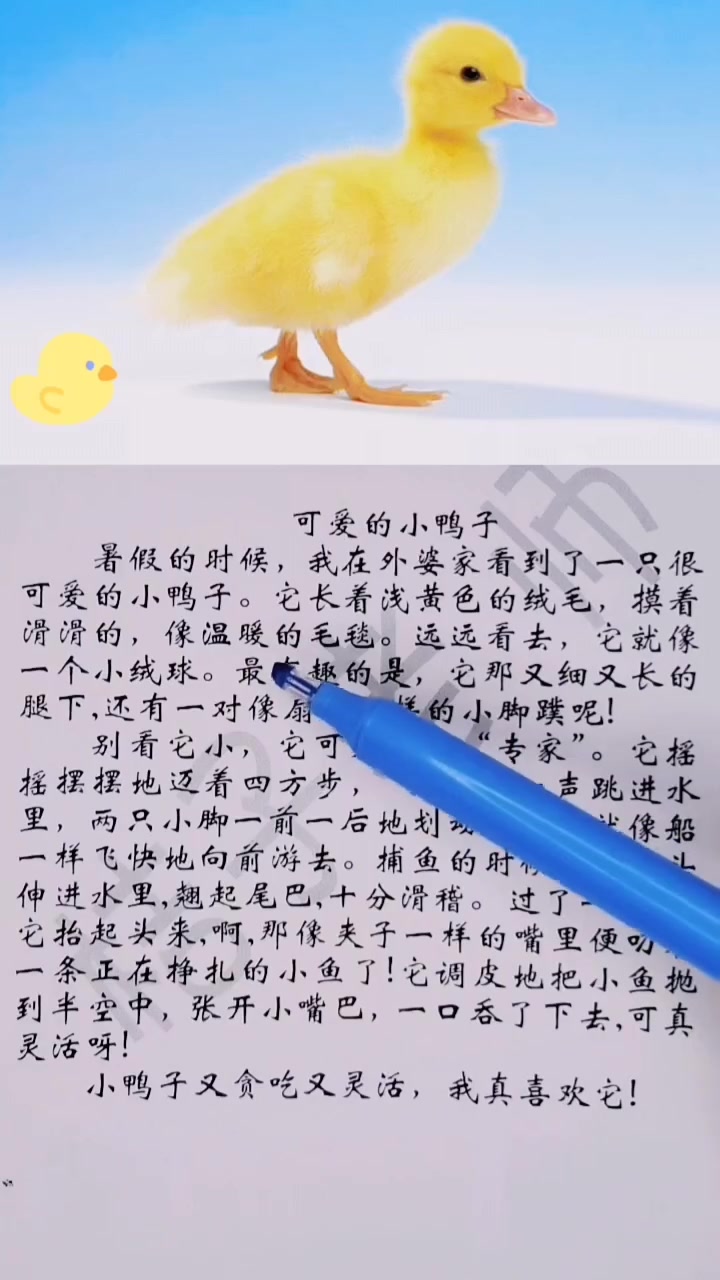 可爱的小鸭子
暑假的时候，我在外婆家看到了一只很
可爱的小鸭子。它长着浅黄色的绒毛，摸着
滑滑的，像温暖的毛毯。远远看去，它就像
一个小绒球。最有趣的是，它那又细又长的
腿下,还有一对像扇 样的小脚蹼呢!
别看它小，它可 “专家”。它摇
摇摆摆地迈着四方步， 声跳进水
里，两只小脚一前一后地划动 就像船
一样飞快地向前游去。捕鱼的时候 头
伸进水里,翘起尾巴,十分滑稽。过了一
它抬起头来,啊,那像夹子一样的嘴里便叼
一条正在挣扎的小鱼了!它调皮地把小鱼抛
到半空中，张开小嘴巴，一口吞了下去,可真
灵活呀!
小鸭子又贪吃又灵活，我真喜欢它!